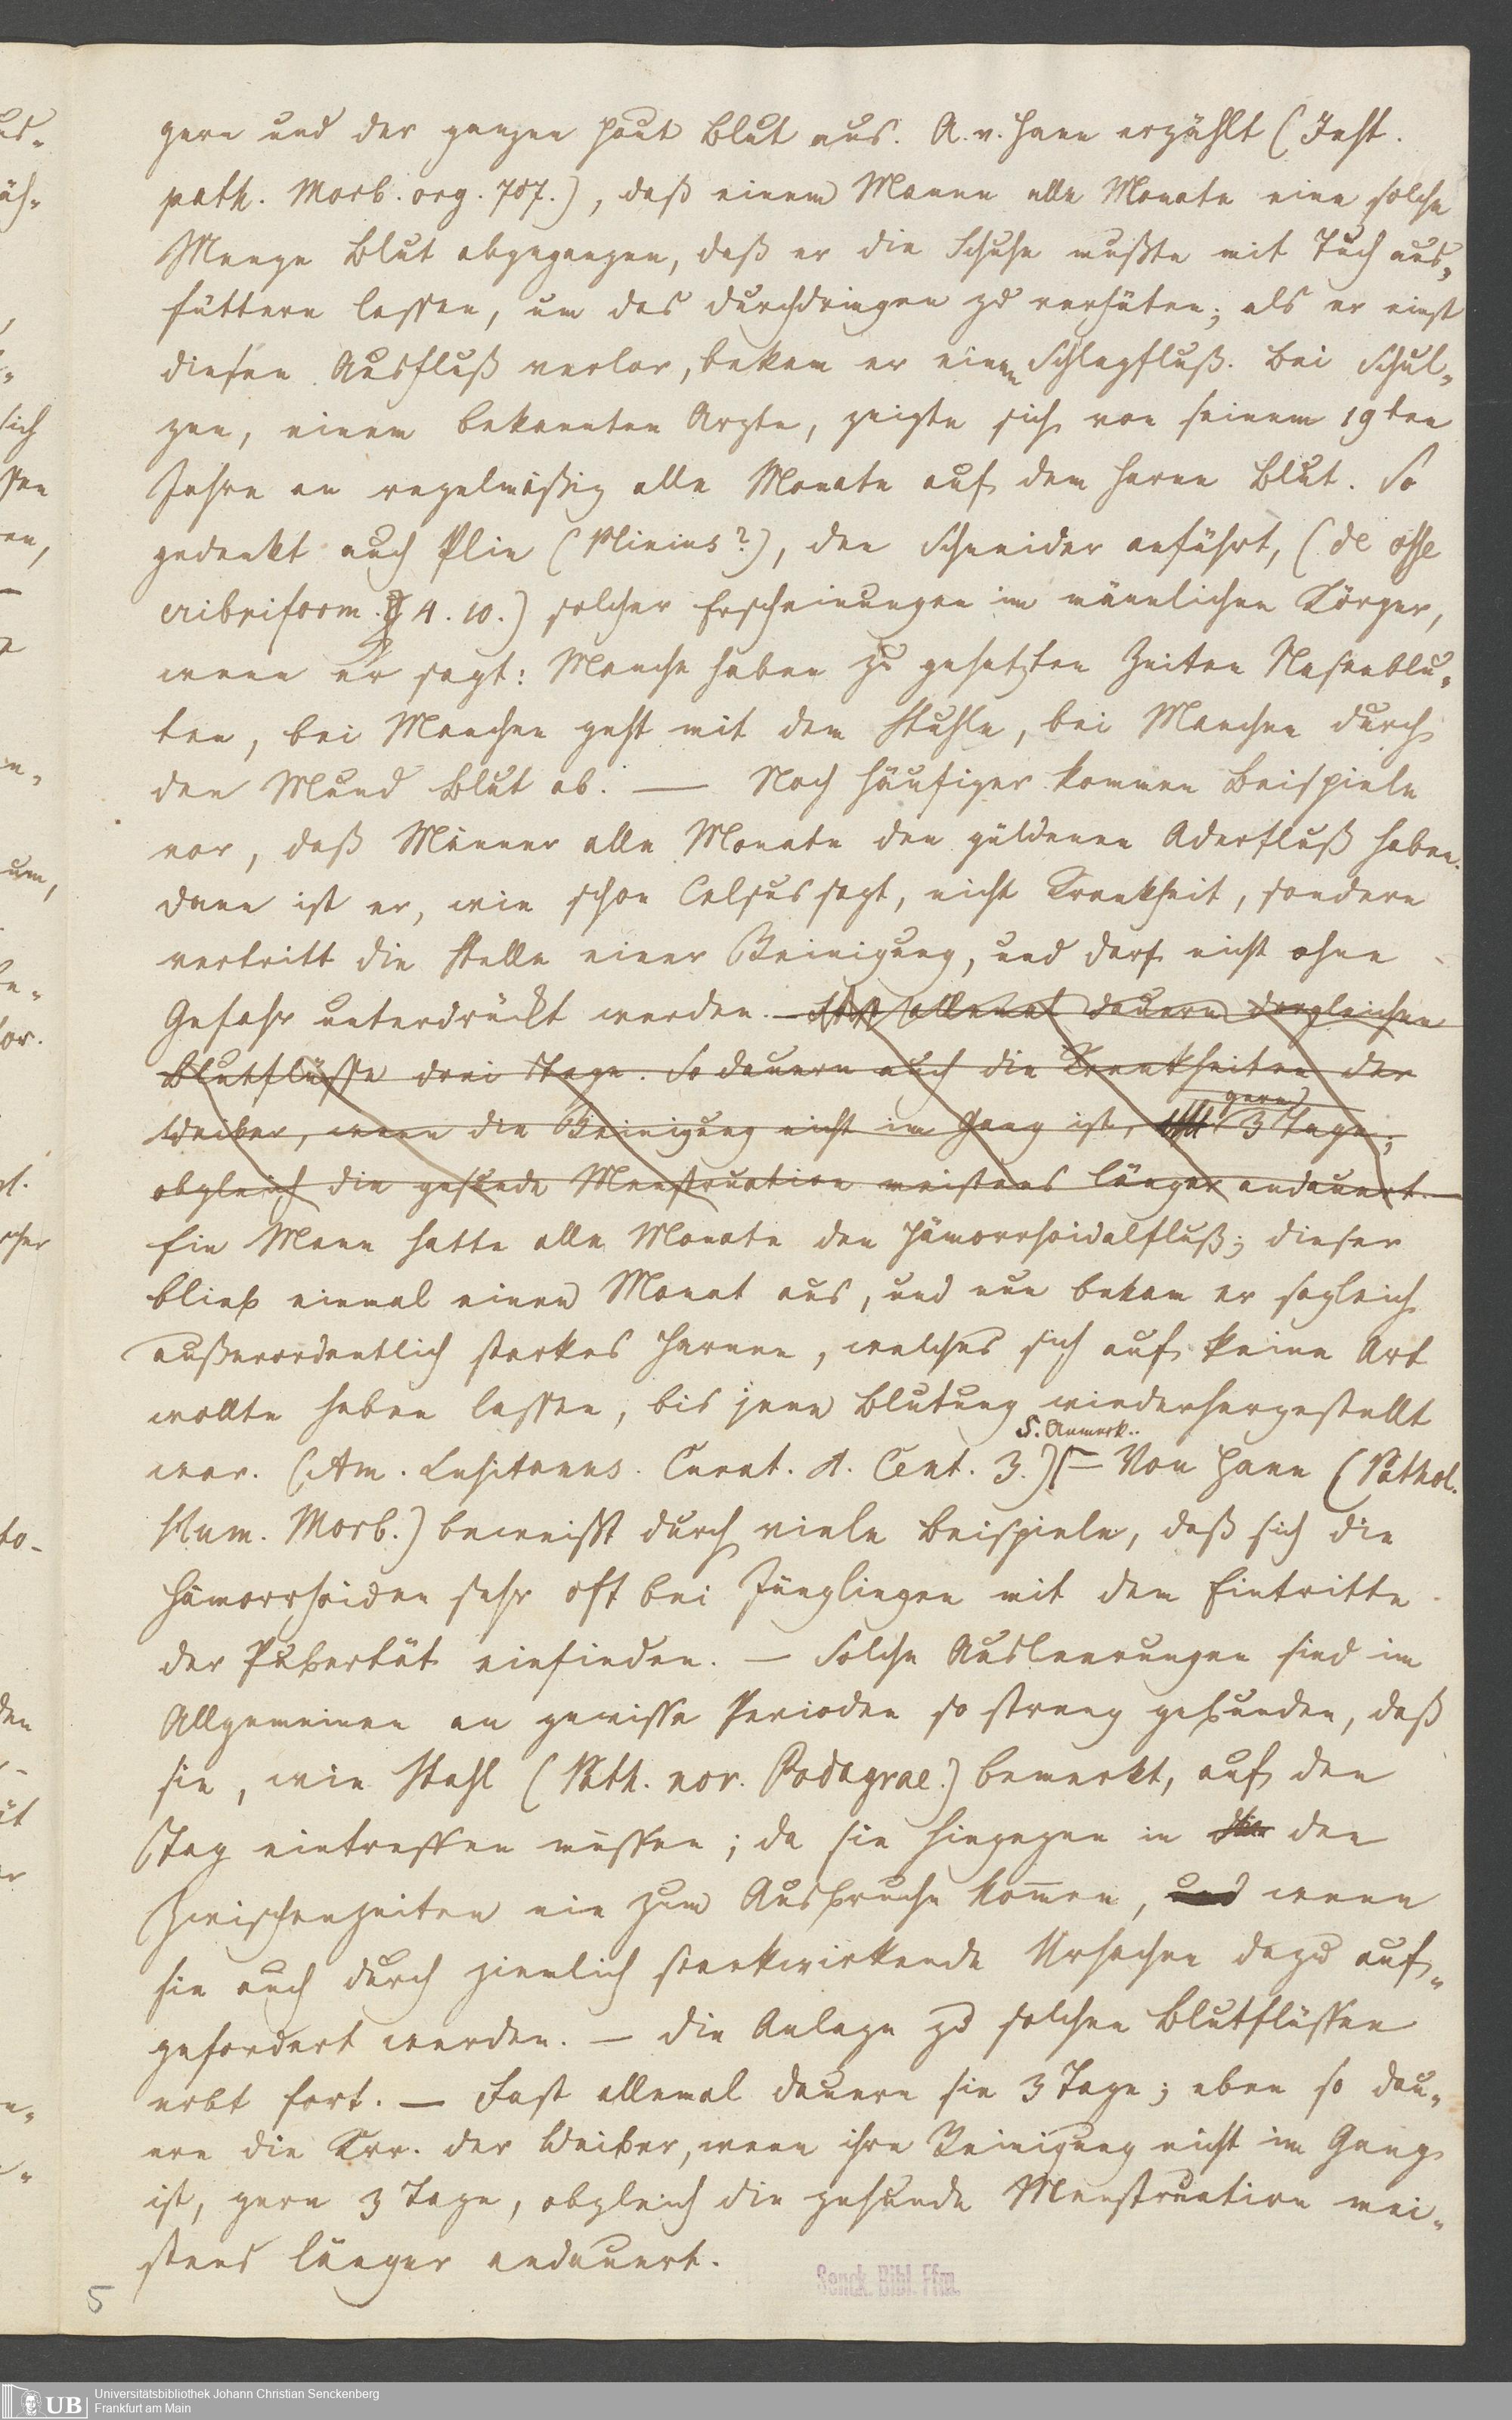 gern und der ganzen Haut Blut aus. A. v. Haen erzählt (Inst.
path. Morb. org. 707.), daß einem Manne alle Monate eine solche
Menge Blut abgegangen, daß er die Schuhe mußte mit Tuch aus„
füttern lassen, um das Durchdringen zu verhüten; als er einst
diesen Ausfluß verlor, bekam er einen Schlagfluß. Bei Schul„
zen, einem bekannten Arzte, zeigte sich von seinem 19ten
Jahre an regelmäßig alle Monate auf dem Harne Blut. So
gedenkt auch Plin (Plinius?), den Schneider anführt, (de osse
cribriform. § 4. 10.) solcher Erscheinungen im männlichen Körper,
wenn er sagt: Manche haben zu gesetzten Zeiten Nasenblu„
ten, bei Manchen geht mit dem Stuhle, bei Manchen durch
den Mund Blut ab. — Noch häufiger kommen Beispiele
vor, daß Männer alle Monate den güldenen Aderfluß haben.
Dann ist er, wie schon Celsus sagt, nicht Krankheit, sondern
vertritt die Stelle einer Reinigung, und darf nicht ohne
Gefahr unterdrückt werden. — Fast allemal dauern dergleichen
Blutflüsse drei Tage. So dauern auch die Krankheiten der
Weiber, wenn die Reinigung nicht im Gang ist, gern 3 Tage;
obgleich die gesunde Menstruation meistens länger andauert. —
Ein Mann hatte alle Monate den Hämorrhoidalfluß; dieser
blieb einmal einen Monat aus, und nun bekam er sogleich
außerordentlich starkes Harnen, welches sich auf keine Art
wollte heben lassen, bis jene Blutung wiederhergestellt
war. (Am. Lusitanus. Curat. A. Cent. 3.) S. Anmerk.. — Von Haen (Pathol.
Num. Morb.) beweist durch viele Beispiele, daß sich die
Hämorrhoiden sehr oft bei Jünglingen mit dem Eintritte
der Pubertät einfinden. — Solche Ausleerungen sind im
Allgemeinen an gewisse Perioden so streng gebunden, daß
sie, wie Stahl (Path. nov. Podagrae.) bemerkt, auf den
Tag eintreffen müssen; da sie hingegen in den
Zwischenzeiten nie zum Ausbruche kommen, und wenn
sie auch durch ziemlich starkwirkende Ursachen dazu auf„
gefordert werden. — Die Anlage zu solchen Blutflüssen
erbt fort. — Fast allemal dauern sie 3 Tage; eben so dau„
ern die Krr. der Weiber, wenn ihre Reinigung nicht im Gang
ist, gern 3 Tage, obgleich die gesunde Menstruation mei„
stens länger andauert.
Senck. Bibl. Ffm.
5
UB Universitätsbibliothek Johann Christian Senckenberg
Frankfurt am Main